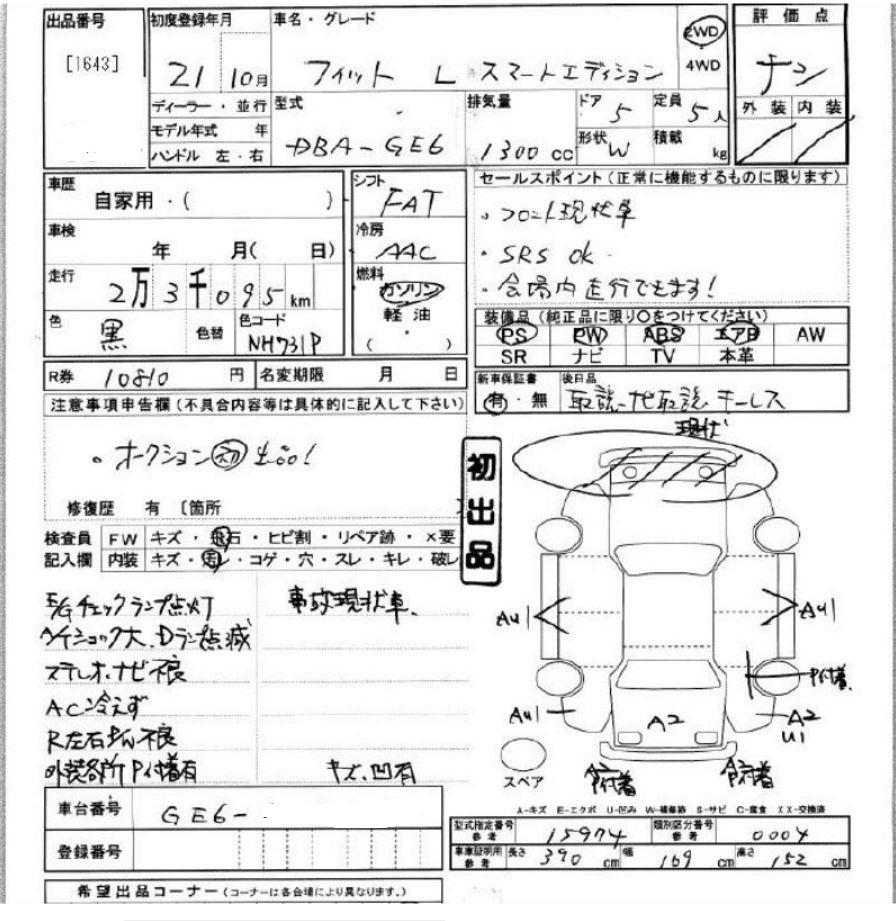 出品番号
[1643]
初度登録年月
21 10月
車名・グレード
フィット L スマートエディション
2WD
4WD
評価点
外装 内装
ディーラー・並行
モデル年式 年
ハンドル 左・右
型式
DBA-GE6
排気量
1300 cc
ドア 5
定員 5人
形状 W
積載 kg
車歴
自家用・( )
車検
年 月( 日)
走行
2万3千095 km
色
黒
色替
色コード
NH731P
シフト
FAT
冷房
AAC
燃料
ガソリン
軽油
( )
セールスポイント(正常に機能するものに限ります)
・フロント現状車
・SRS ok.
・会場内走行できます!
装備品(純正品に限り○をつけてください)
PS PW ABS エアB AW
SR ナビ TV 本革
R券 10810 円
名変期限 月 日
新車保証書
有・無
後日品
取説 ナビ取説 キーレス
注意事項申告欄(不具合内容等は具体的に記入して下さい)
・オークション初出品!
修復歴 有 〔箇所
初出品
検査員
記入欄
FW キズ・飛石・ヒビ割・リペア跡・×要
内装 キズ・汚レ・コゲ・穴・スレ・キレ・破レ
E/Gチェックランプ点灯
事故現状車.
ヘイショック大、Dランプ点滅
ステレオ、ナビ不良
AC冷えず
R左右 不良
外装各所P付着有
キズ、凹有
現状
AU1
AU1
P付着
AU1
A2
A2
U1
スペア
付着
付着
A-キズ E-エクボ U-凹み W-補修跡 S-サビ C-腐食 XX-交換済
車台番号
GE6-
登録番号
型式指定番号
参考
15974
類別区分番号
参考
0004
車庫証明用
参考
長さ 390 cm
幅 169 cm
高さ 152 cm
希望出品コーナー(コーナーは各会場により異なります。)